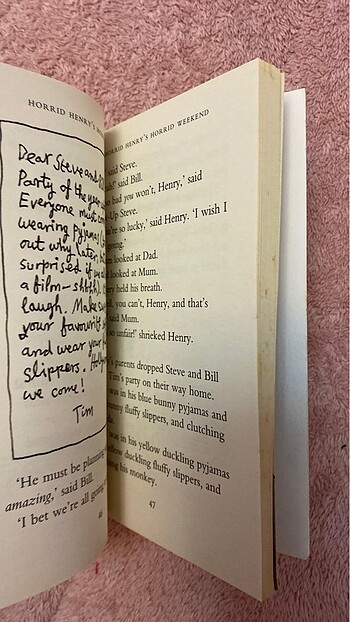 HORRID HENRY'S
Dear Steve and
Party of the year
Everyone must
wearing pyjamas
out why later
surprised if
a film – shhhh
laugh. Make
your favourite
and wear your
slippers.
we come!
Tim
'He must be planning
amazing,' said Bill.
'I bet we're all going
HORRID HENRY'S HORRID WEEKEND
said Steve.
said Bill.
bad you won't, Henry,' said
Up Steve.
so lucky,' said Henry. 'I wish I
looked at Dad.
looked at Mum.
held his breath.
you can't, Henry, and that's
said Mum.
unfair!' shrieked Henry.
parents dropped Steve and Bill
Tim's party on their way home.
was in his blue bunny pyjamas and
fluffy slippers, and clutching
was in his yellow duckling pyjamas
duckling fluffy slippers, and
his monkey.
47